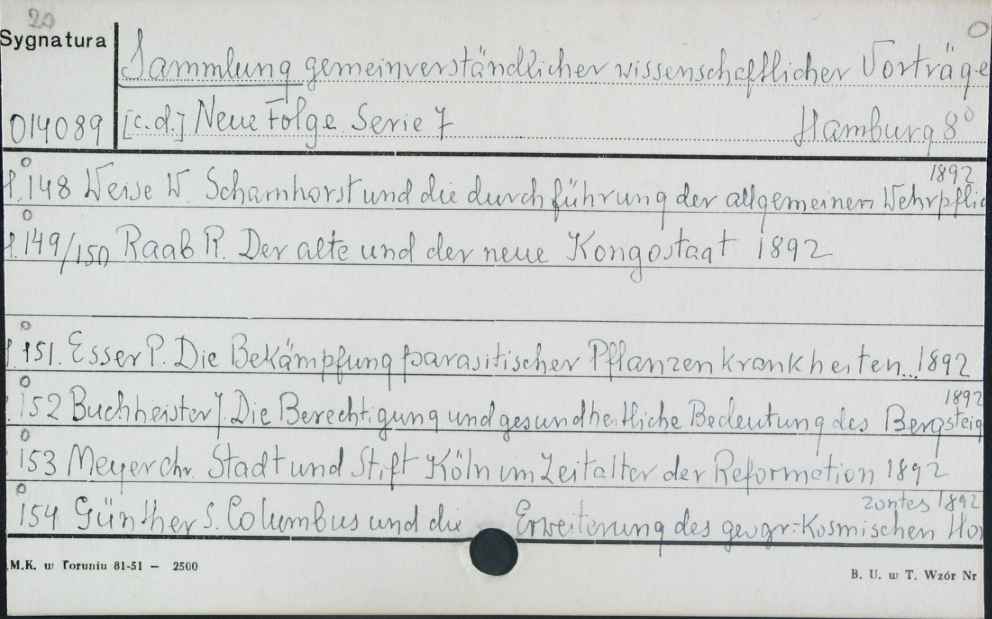 20
Sygnatura
Sammlung gemeinverständlicher wissenschaftlicher Vorträge
014089 [c.d.] Neue Folge Serie 7 Hamburg 8°
148 Weise W. Scharnhorst und die durchführung der allgemeinen Wehrpflic 1892
149/150 Raab R. Der alte und der neue Kongostaat 1892
151. Esser P. Die Bekämpfung parasitischer Pflanzenkrankheiten... 1892
152 Buchheister J. Die Berechtigung und gesundheitliche Bedeutung des Bergsteig 1892
153 Meyer Chr. Stadt und Stift Köln im Zeitalter der Reformation 1892
154 Günther S. Columbus und die Erweiterung des geogr.-Kosmischen Hor zontes 1892
M.K. w Toruniu 81-51 — 2500
B. U. w T. Wzór Nr